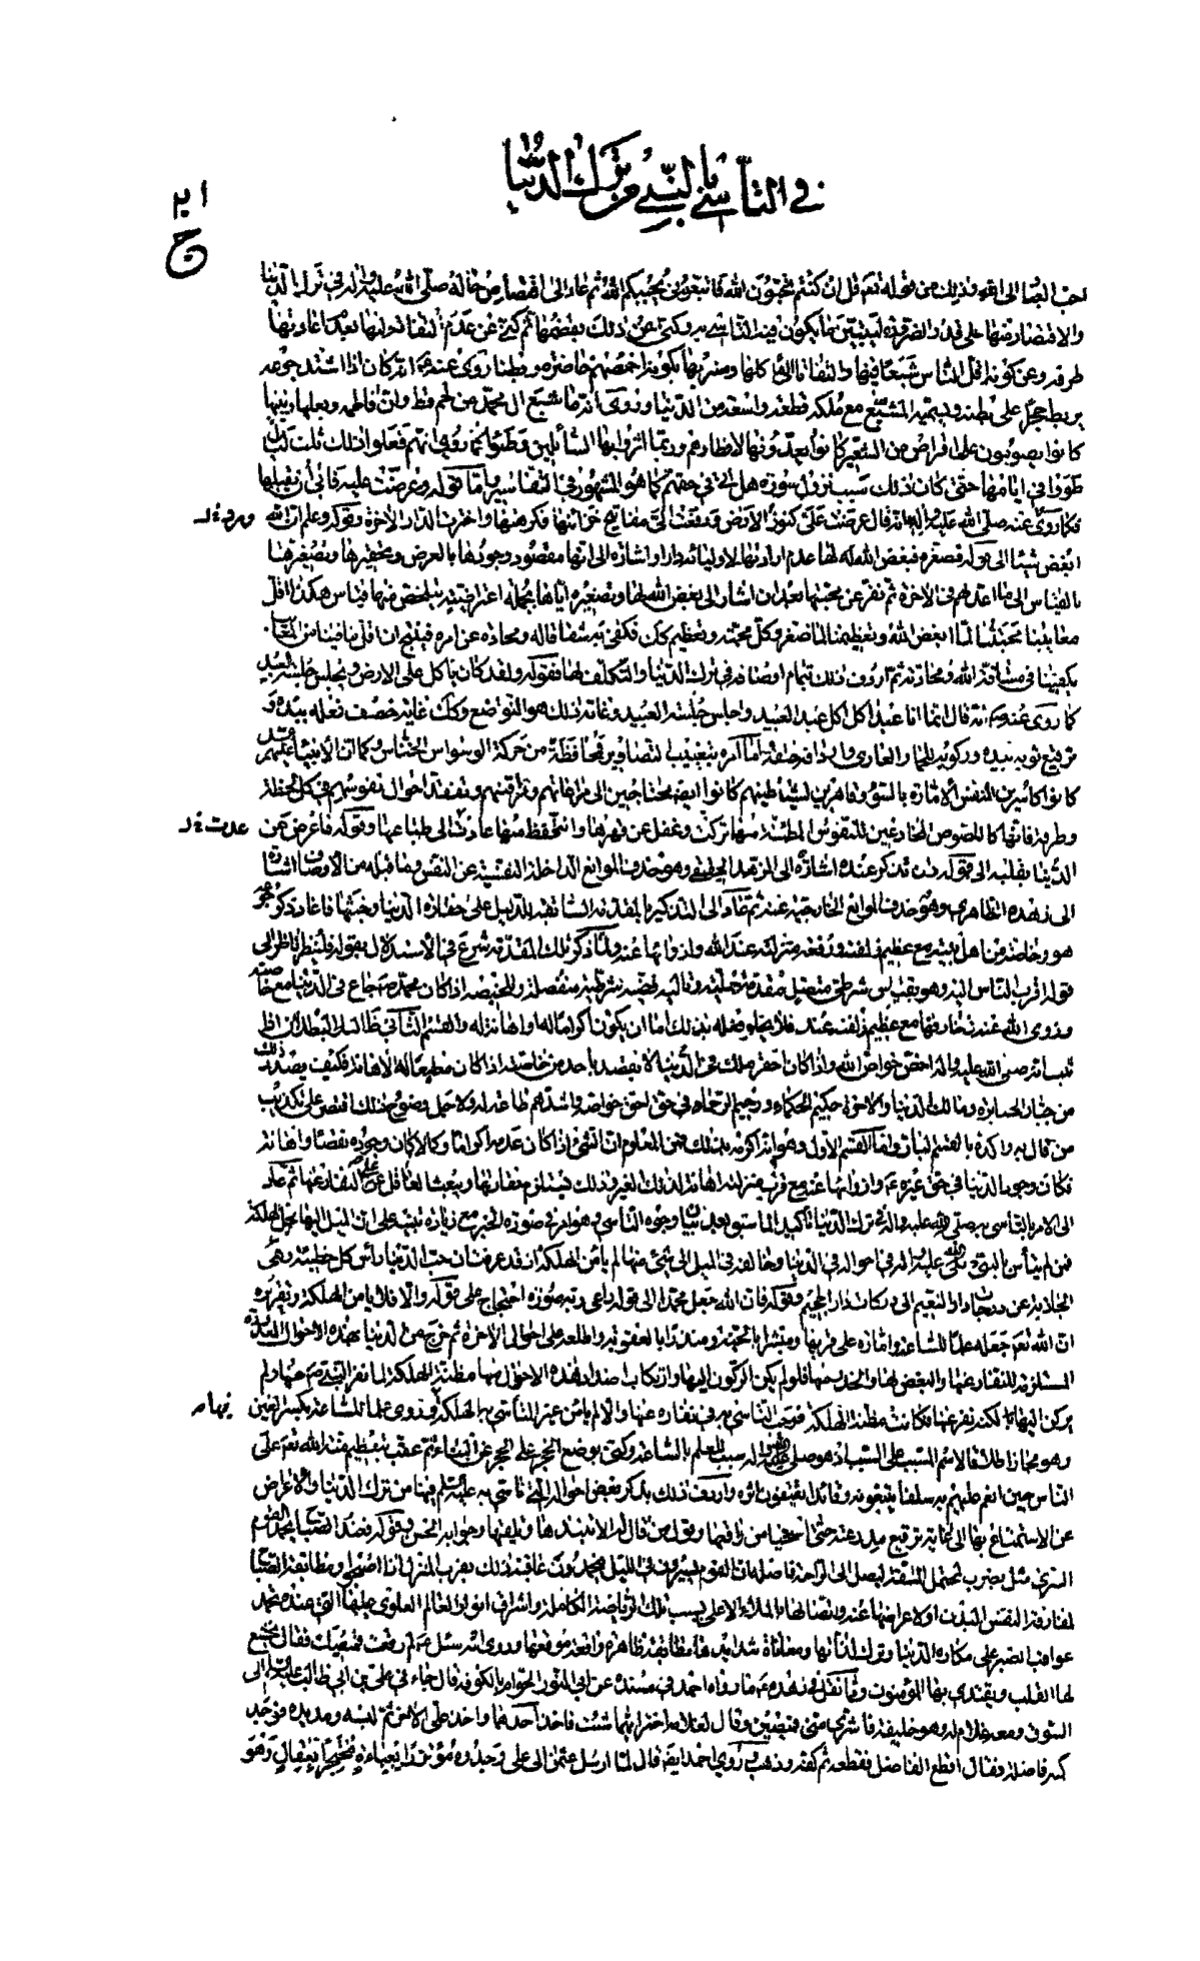 في التأسي بالنبي في ترك الدنيا
٢١
ج
احب العباد الى الله وذلك من قوله تعم قل ان كنتم تحبون الله فاتبعوني يحببكم الله ثم عاد الى اقتصاص حاله صلى الله عليه واله في ترك الدنيا
والاقتصار منها على قدر الضرورة ليتبين ما يكون فيه التأسي به وكنى عن ذلك بقضمها ثم كنى عن عدم التفاته اليها بعدم اعارتها
طرفه وعن كونه اقل الناس شبعا فيها والتفاتا الى ماكلها ومشربها بكونه اخمصهم خاصرة وبطنا روى عنه انه كان اذا اشتد جوعه
يربط حجرا على بطنه ويسميه المشبع مع ملكه قطعة واسعة من الدنيا وروى انه ما شبع آل محمد من لحم قط وان فاطمة وبعلها وبنيها
كانوا يصومون على اقراص من الشعير كانوا يعدونها لافطارهم وربما آثروا بها السائلين وطووا كما روى انهم فعلوا ذلك ثلث ليال
طووا في ايامها حتى كان ذلك سبب نزول سورة هل اتى في حقهم كما هو المشهور في التفاسير واما قوله وعرضت عليه فابى ان يقبلها
فكما روى عنه صلى الله عليه واله انه قال عرضت علي كنوز الارض ودفعت الي مفاتيح خزائنها فكرهتها واخترت الدار الاخرة وقوله وعلم ان الله
ابغض شيئا الى قوله فصغره فبغض الله له لها عدم ارادتها لاوليائه دارا واشارة الى انها مقصود وجودها بالعرض وتحقيرها وتصغيرها
بالقياس الى ما اعد لهم في الاخرة ثم نفر عن محبتها بعد ان اشار الى بغض الله لها وتصغيره اياها بجملة اعتراضية يتلخص منها قياس هكذا اقل
معايبنا محبتنا لما ابغض الله وتعظيمنا لما صغر وكل محبة وتعظيم كك فكفى به شقاقا له ومحادة عن امره فينتج ان اقل ما فينا من المعايب
يكفينا في مشاقة الله ومحادته ثم اردف ذلك بتمام اوصافه في ترك الدنيا والتكلف لها فقوله ولقد كان ياكل على الارض ويجلس جلسة العبد
كما روى عنه انه قال انما انا عبد اكل اكل العبيد واجلس جلسة العبيد وغاية ذلك هو التواضع وكك غاية خصف نعله بيده و
ترقيع ثوبه بيده وركوبه للحمار العاري وارداف خلفه واما امره بتغييب التصاوير فمحافظة من حركة الوسواس الخناس وكما ان الانبياء عليهم
كانوا كاسرين للنفس الامارة بالسوء وقاهرين لشياطينهم كانوا ايضا محتاجين الى مراعاتهم ومراقبتهم وتفقد احوال نفوسهم في كل لحظة
وطرفة فانها كاللصوص المخادعين للنفوس المطمئنة متى تركت وغفل عن قهرها والتحفظ منها عادت الى طباعها وقوله فاعرض عن
الدنيا بقلبه الى قوله وان تذكر عنده اشارة الى الزهد الحقيقي وهو حذف الموانع الداخلة النفسية عن النفس وما قبله من الاوصاف اشارة
الى زهده الظاهري وهو حذف الموانع الخارجية عنه ثم عاد الى التذكير بالمقدمة السابقة للدليل على حقارة الدنيا وخبثها فاعاد ذكر جوعه
هو وخاصته من اهل بيته مع عظيم زلفته ورفعة منزلته عند الله وازوائها عنه ولما ذكر تلك المقدمة شرع في الاستدلال بقوله فلينظر ناظر الى
قوله اقرب الناس اليه وهو بقياس شرطي متصل مقدمه حملية وتاليه قضية شرطية منفصلة وتلخيصه اذا كان محمد ص جاع في الدنيا مع خاصته
وزوى الله عنه زخارفها مع عظيم زلفته عنده فلا يخلو فعله بذلك اما ان يكون اكراما له او اهانة له والقسم الثاني ظاهر البطلان اذ
ثبت انه صلى الله عليه واله اخص خواص الله واذا كان احقر ملك في الدنيا لا يقصد باحد من خاصته اذا كان مطيعا له الاهانة فكيف يصدر ذلك
من جبار الجبابرة ومالك الدنيا والاخرة حكيم الحكماء ورحيم الرحماء في حق احق خواصه واشدهم طاعة له ولاجل وضوح ذلك اقتصر على تكذيب
من قال به واكده بالقسم البار واما القسم الاول وهو انه اكرمه بذلك فمن المعلوم ان الشيء اذا كان عدمه اكراما وكمالا كان وجوده نقصا واهانة
فكان وجود الدنيا في حق غيره ع وازوائها عنه مع قرب منزلته اهانة لذلك الغير وذلك يستلزم حقارتها ويبعث العاقل على النفار عنها ثم عاد
الى الامر بالتأسي به صلى الله عليه واله في ترك الدنيا تأكيدا لما سبق بعد بيان وجوه التأسي وهو امر في صورة الخبر مع زيادة تنبيه على ان الميل اليها محل الهلكة
فمن لم يتأس بالنبي صلى الله عليه واله في احواله في الدنيا وخالفه في الميل الى شيء منها لم يأمن الهلكة اذ قد عرفت ان حب الدنيا رأس كل خطيئة وهي
الجاذبة عن درجات دار النعيم الى دركات دار الجحيم وقوله فان الله جعل محمدا الى قوله داعي ربه صورة احتجاج على قوله والا فلا يأمن الهلكة وتقريره
ان الله تعم جعله علما للساعة وامارة على قربها ومبشرا بالجنة ومنذرا بالعقوبة واطلعه على احوال الاخرة ثم خرج من الدنيا بهذه الاحوال المعدودة
المستلزمة للنفار عنها والبغض لها والحذر منها فلو لم يكن الركون اليها وارتكاب اضداد هذه الاحوال منها مظنة الهلكة لما نفر النبي ص عنها ولم
يركن اليها لكنه نفر عنها فكانت مظنة الهلكة فوجب التأسي به في نفاره عنها والا لم يأمن غير المتأسي به الهلكة وروى علما للساعة بكسر العين
وهو مجاز اطلاقا لاسم المسبب على السبب اذ هو صلى الله عليه واله سبب للعلم بالساعة وكنى بوضع الحجر على الحجر عن البناء ثم عقب بتعظيم منة الله تعم على
الناس حين انعم عليهم به سلفا يتبعونه وقائدا يقتفون اثره واردف ذلك بذكر بعض احواله التي تأسى به ع فيها من ترك الدنيا والاعراض
عن الاستمتاع بها الى غاية ترقيع مدرعته حتى استحيا من راقعها وقول من قال له الا تنبذها وتلقيها وجوابه الحسن وقوله فعند الصباح يحمد القوم
السرى مثل يضرب لمحتمل المشقة ليصل الى الراحة واصله ان القوم يسيرون في الليل فيحمدون عاقبة ذلك بقرب المنزل اذا اصبحوا ومطابقة الصباح
لمفارقة النفس للبدن او لاعراضها عنه واتصالها بالملاء الاعلى بسبب تلك الرياضة الكاملة واشراق انوار العالم العلوي عليها التي عنده تحمد
عواقب الصبر على مكاره الدنيا وترك لذاتها ومعاناة شدايدها مطابقة ظاهرة واقعة موقعها وروى انه سئل ع لم رقعت قميصك فقال يخشع
لها القلب ويقتدي بها المؤمنون ومما نقل في زهده ع ما رواه احمد في مسنده عن ابي النور الخوام بالكوفة قال جاءني علي بن ابي طالب عليه السلام الى
السوق ومعه غلام له وهو خليفة فاشترى مني قميصين وقال لغلامه اختر ايهما شئت فاخذ احدهما واخذ علي الاخر ثم لبسه ومد يده فوجد
كمه فاضلة فقال اقطع الفاضل فقطعه ثم كفه وذهب وروى احمد ايضا قال لما ارسل عثمان الى علي وجدوه مؤتزرا بعباءة محتجزا بعقال وهو